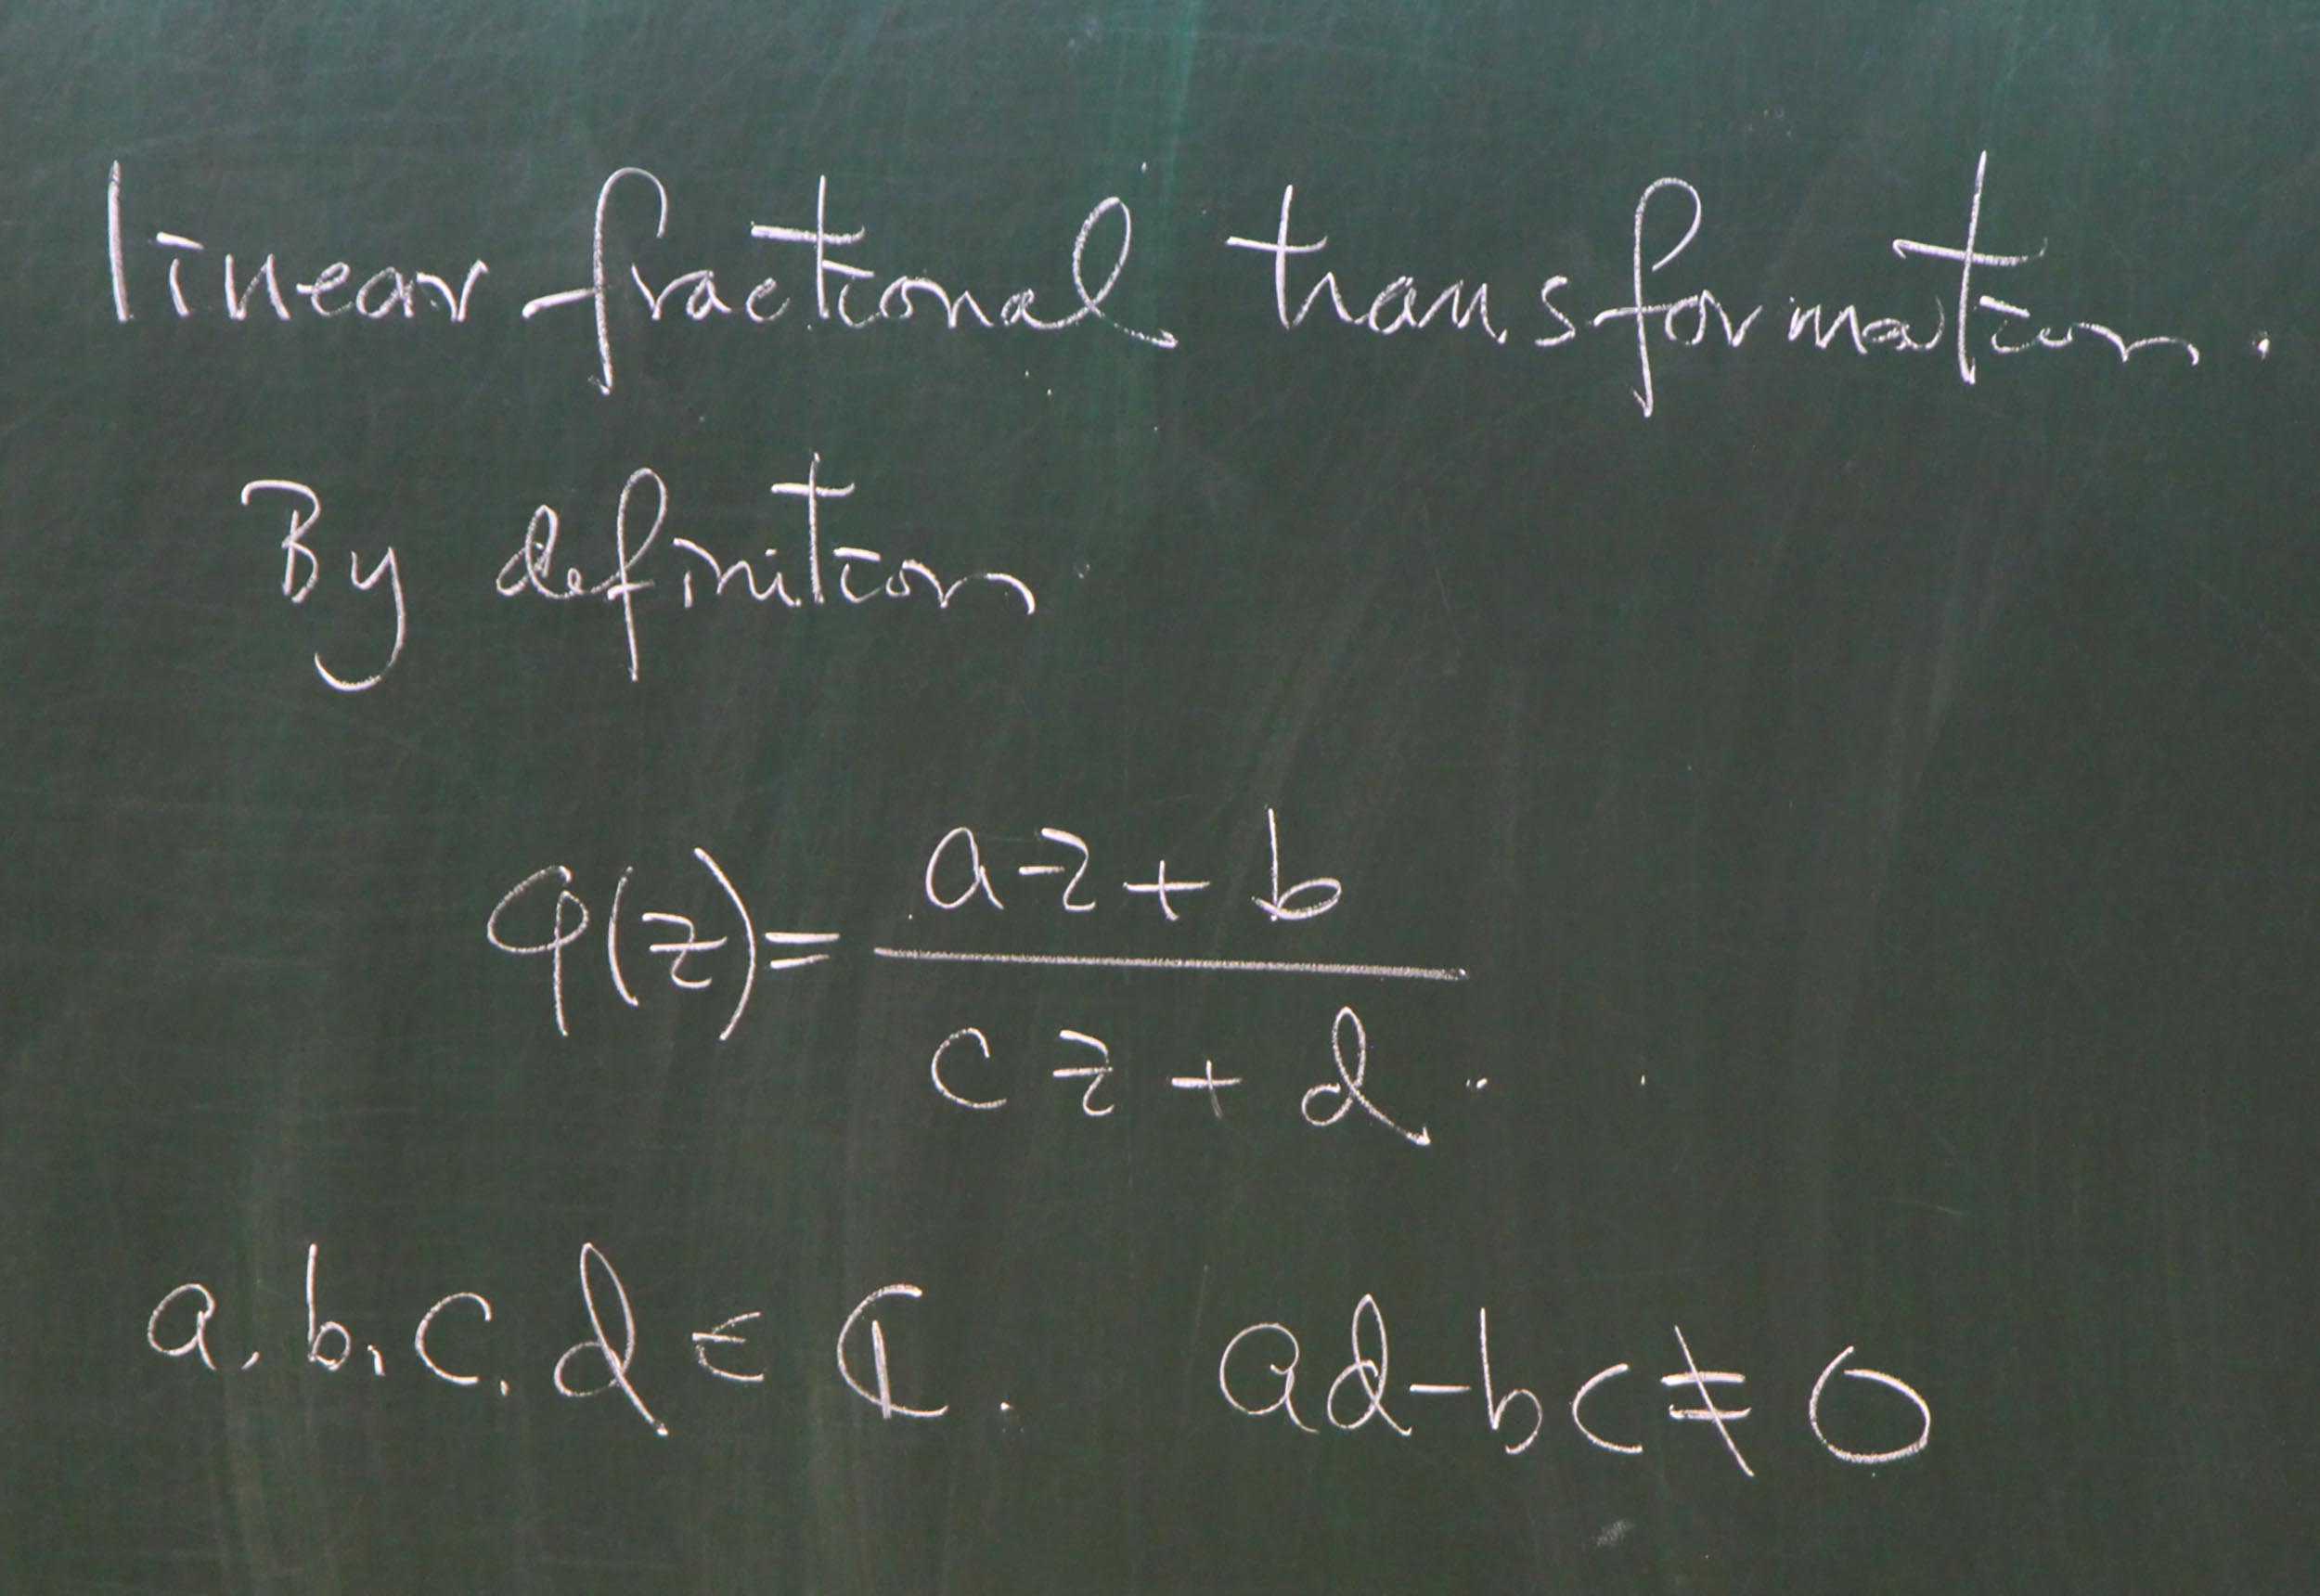 linear fractional transformation.
By definition
φ(z)= az+b
cz+d.
a, b, c, d ∈ ℂ. ad-bc≠0